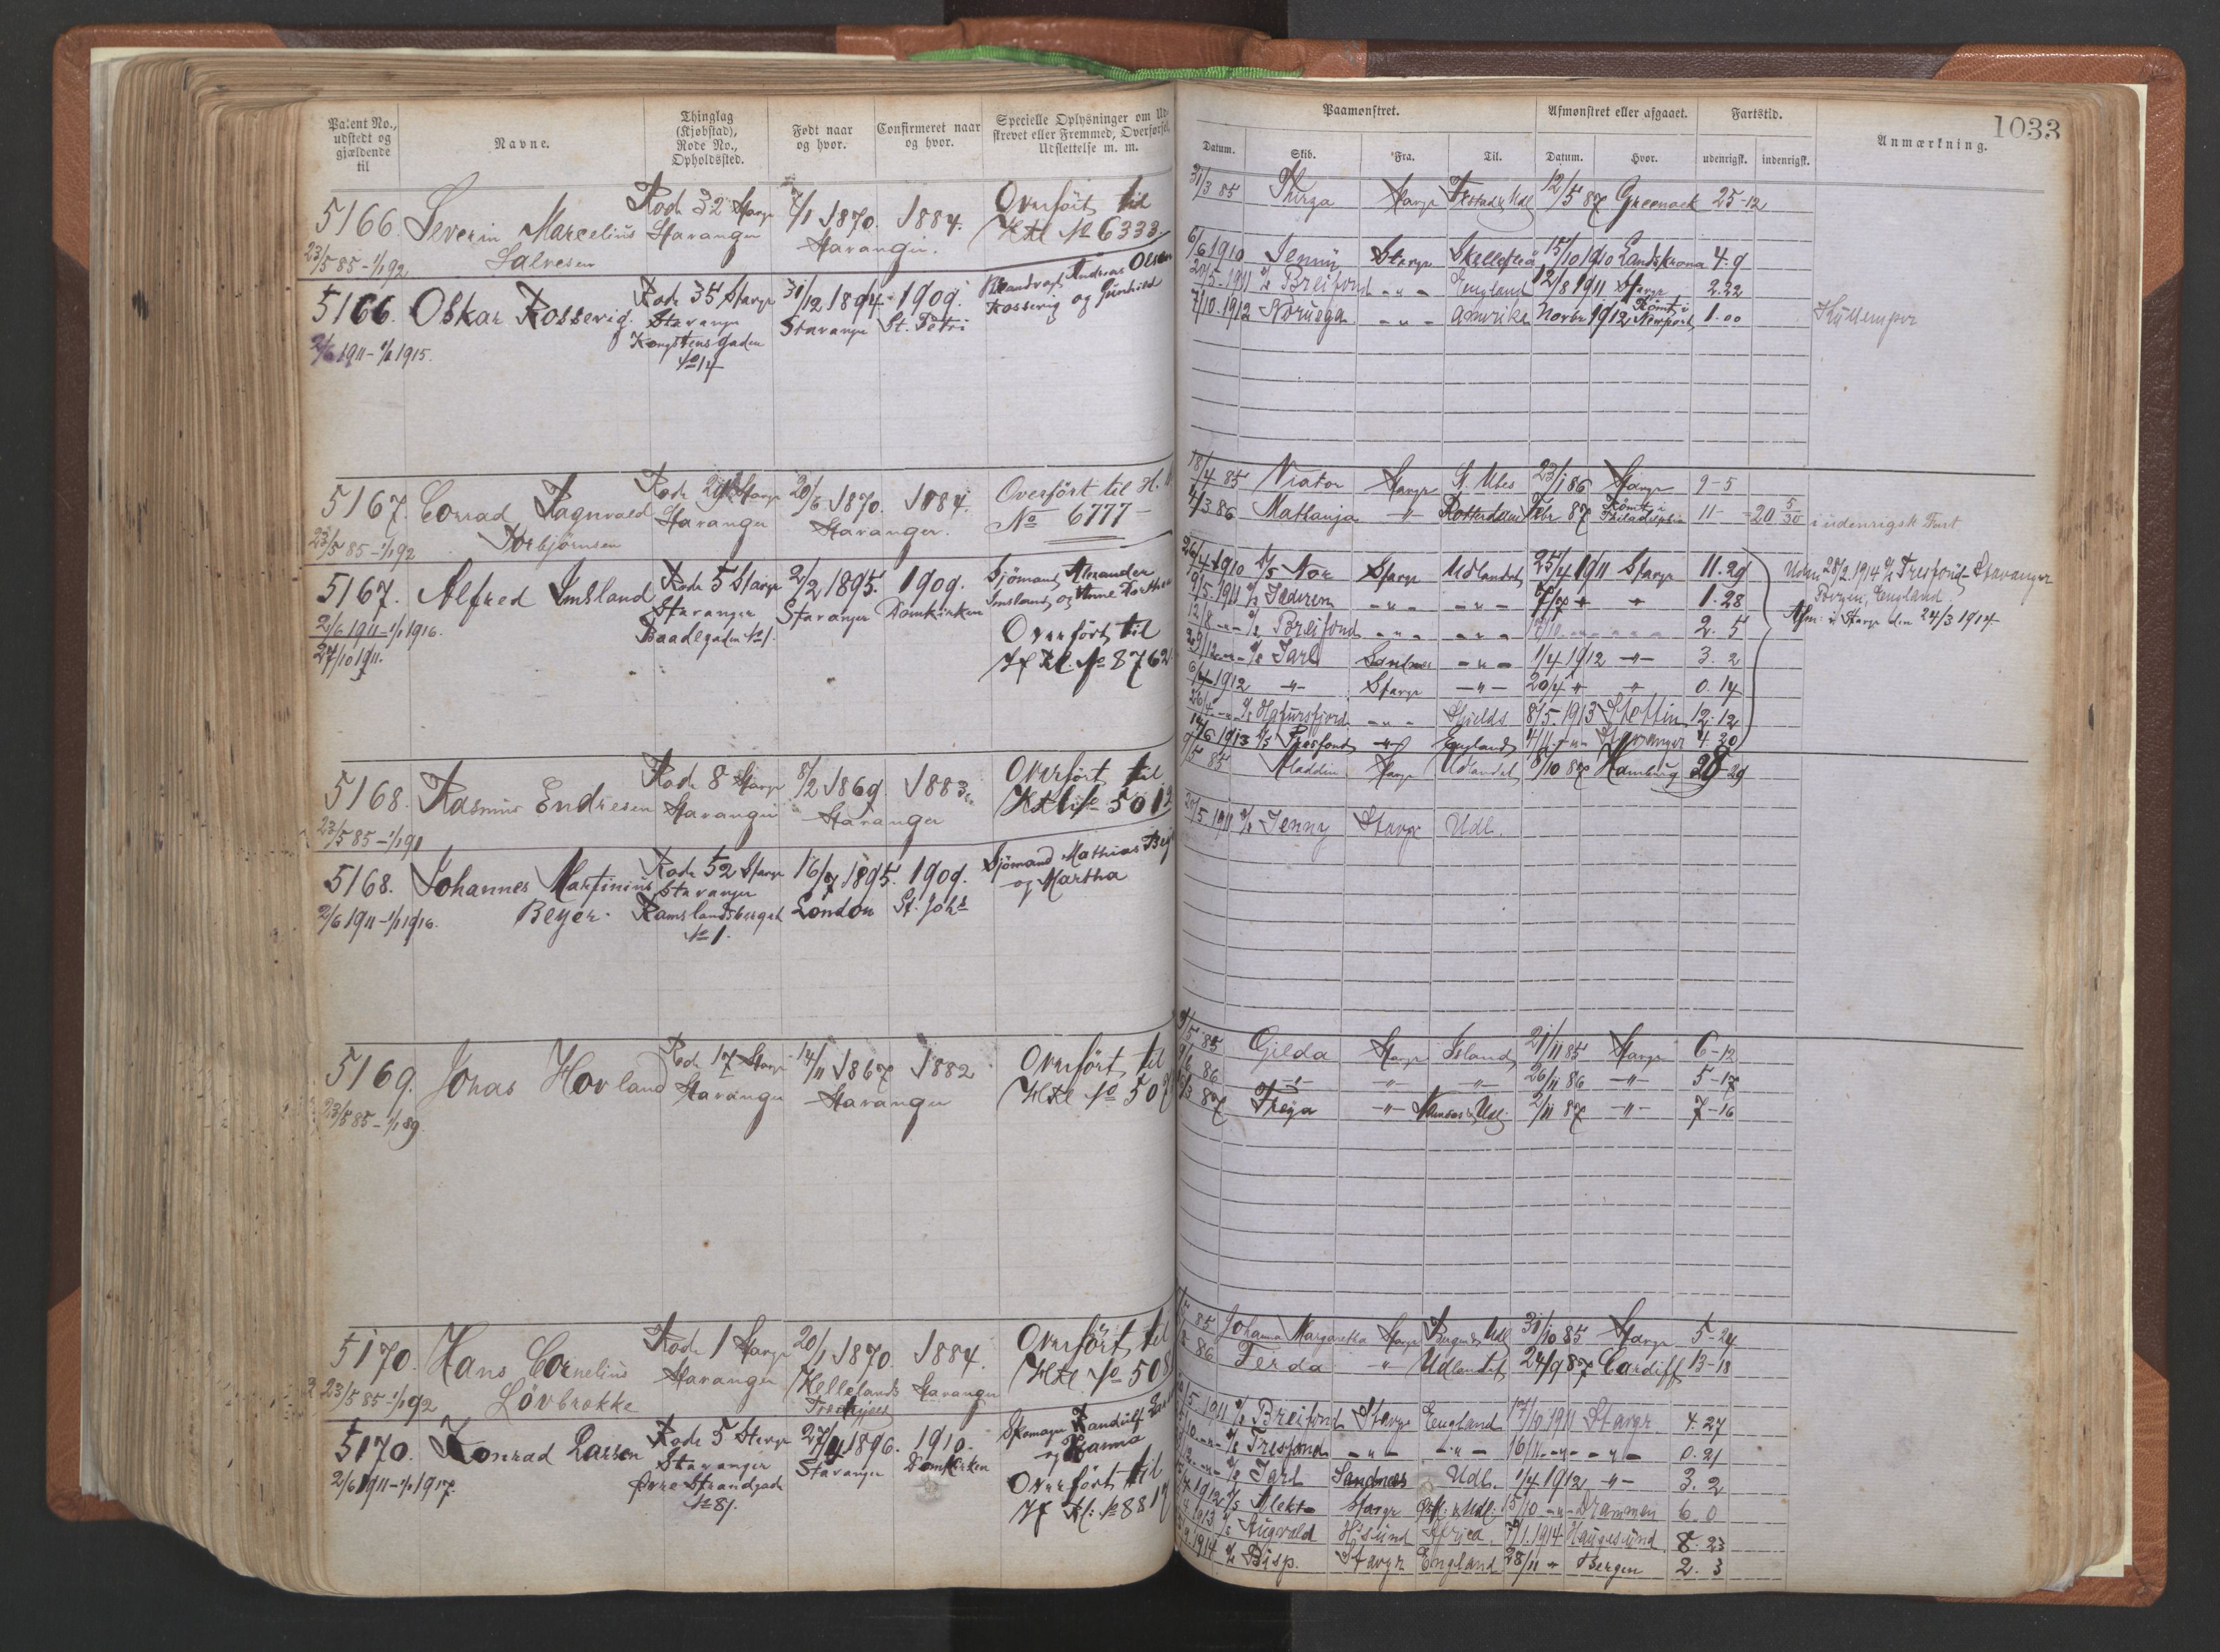 Patent No.,
udstedt og
gjældende
til
Navne.
Thinglag
(Kjøbstad),
Rode No.,
Opholdssted.
Født naar
og hvor.
Confirmeret naar
og hvor.
Specielle Oplysninger om Ud-
skrevet eller Fremmed, Overførsel,
Udslettelse m. m.
Paamønstret.
Afmønstret eller afgaaet.
Fartstid.
1033
Datum.
Skib.
Fra.
Til.
Datum.
Hvor.
udenrigsk.
indenrigsk.
Anmærkning.
5166. Severin Marcelius Rode 32 Stavgr 7/1 1870. 1884. Overført til
23/5 85 - 1/1 92 Salvesen Stavanger Stavanger. Htl No 6333
31/3 85 Thirza Stavgr Udl 12/5 87 Greenock 25-12
5166. Oskar Rosserig. Rode 35 Stavgr 31/12 1894. 1909. Andreas Olsen
2/6 1911 - 1/1 1915. Stavanger Stavanger St. Petri Rosserig og Gunhild
Kongstensgaden
No 14
6/6 1910 Jenny Stavgr Skellefteå 15/10 1910 Landskrona 4.9
20/5 1911 Breifond - " - England 12/8 1911 Stavgr 2.22
7/10 1912 Noruega - " - Amerika Novbr 1912 Rømt i Newport 1.00
5167. Conrad Ragnvald Stavgr 20/6 1870. 1884. Overført til H.
23/5 85 - 1/1 92 Torbjørnsen Stavanger Stavanger. No 6777 -
18/4 85 Viator Stavgr St. Ubes 23/1 86 Stavgr 9-5
4/3 86 Matlanja " Rotterdam Febr 87 Rømt i Philadelphia 11- =20 5/30 i udenrigsk Fart
5167. Alfred Imsland Rode 5 Stavgr 2/2 1895. 1909. Sjømand Alexander
2/6 1911 - 1/1 1916. Stavanger Stavanger Domkirken Imsland og Anne Dorthea
27/10 1911. Baadegaden No 1. Overført til
H Kl. No 8762
26/4 1910 D/S Nor Stavgr Udlandet 25/4 1911 Stavgr 11.29
9/5 1911 Jæderen - " - - " - 7/7 " " 1.28
12/8 - " - Breifond - " - - " - 2. 5
29/12 - " - Jarl Sandnes - " - 1/4 1912 - " - 3. 2
6/4 1912 - " - Stavgr - " - 20/4 " " 0. 14
Hafursfjord - " - Shields 8/5 1913 Stettin 12.12
14/6 1913 D/S Tresfond - " - England Stavanger 4.20
28/2 1914 Tresfond - Stavanger
Bergen, England.
Afm: i Stavgr den 24/3 1914.
5168. Rasmus Endresen Rode 8 Stavgr 8/2 1869. 1883. Overført til
23/5 85 - 1/1 91 Stavanger Stavanger
9/5 85 Aladdin Stavgr Udlandet 8/10 87 Hamburg 28-29
5168. Johannes Martinius Rode 52 Stavgr 16/7 1895. 1909. Sjømand Mathias
2/6 1911 - 1/1 1916. Beyer. Stavanger London St. Joh's og Martha
Ramslandsberget
No 1.
20/5 1911 Jenny Stavgr Udl.
5169. Jonas Hovland Rode 17 Stavgr 14/11 1867 1882 Overført til
23/5 85 - 1/1 89. Stavanger Stavanger
5/85 Gjelda Stavgr Island 21/11 85 Stavgr 6-12
86 - " - - " - - " - 26/11 86 - " - 5-17
87 Freya - " - Udl. 2/11 87 - " - 7-16
5170. Hans Cornelius Rode 1 Stavgr 20/1 1870. 1884. Overført til
23/5 85 - 1/1 92 Lövbrække Stavanger Hellelands Stavanger
85 Johanna Margaretha Stavgr Udl 31/10 85 Stavgr 5-24
86 Ferda " Udlandet 24/9 87 Cardiff 13-18
5170. Konrad Larsen Rode 5 Stavgr 27/4 1896. 1910. Skomager Randulf
2/6 1911 - 1/1 1917. Stavanger Stavanger Domkirken og Hanna
Øvre Strandgade Overført til
No 81.
1911 Breifond Stavgr England 17/10 1911 Stavgr 4.27
Tresfond - " - - " - 16/11 - " - - " - 0.21
Jarl Sandnes Udl. 1/4 1912 - " - 3. 2
1912 Alekto Stavgr 15/10 - " - Drammen 6 0
1913 Augvald H'sund Africa 1914 Haugesund 8. 23
1914 Bisp. Stavgr England 28/11 " Bergen 2. 3